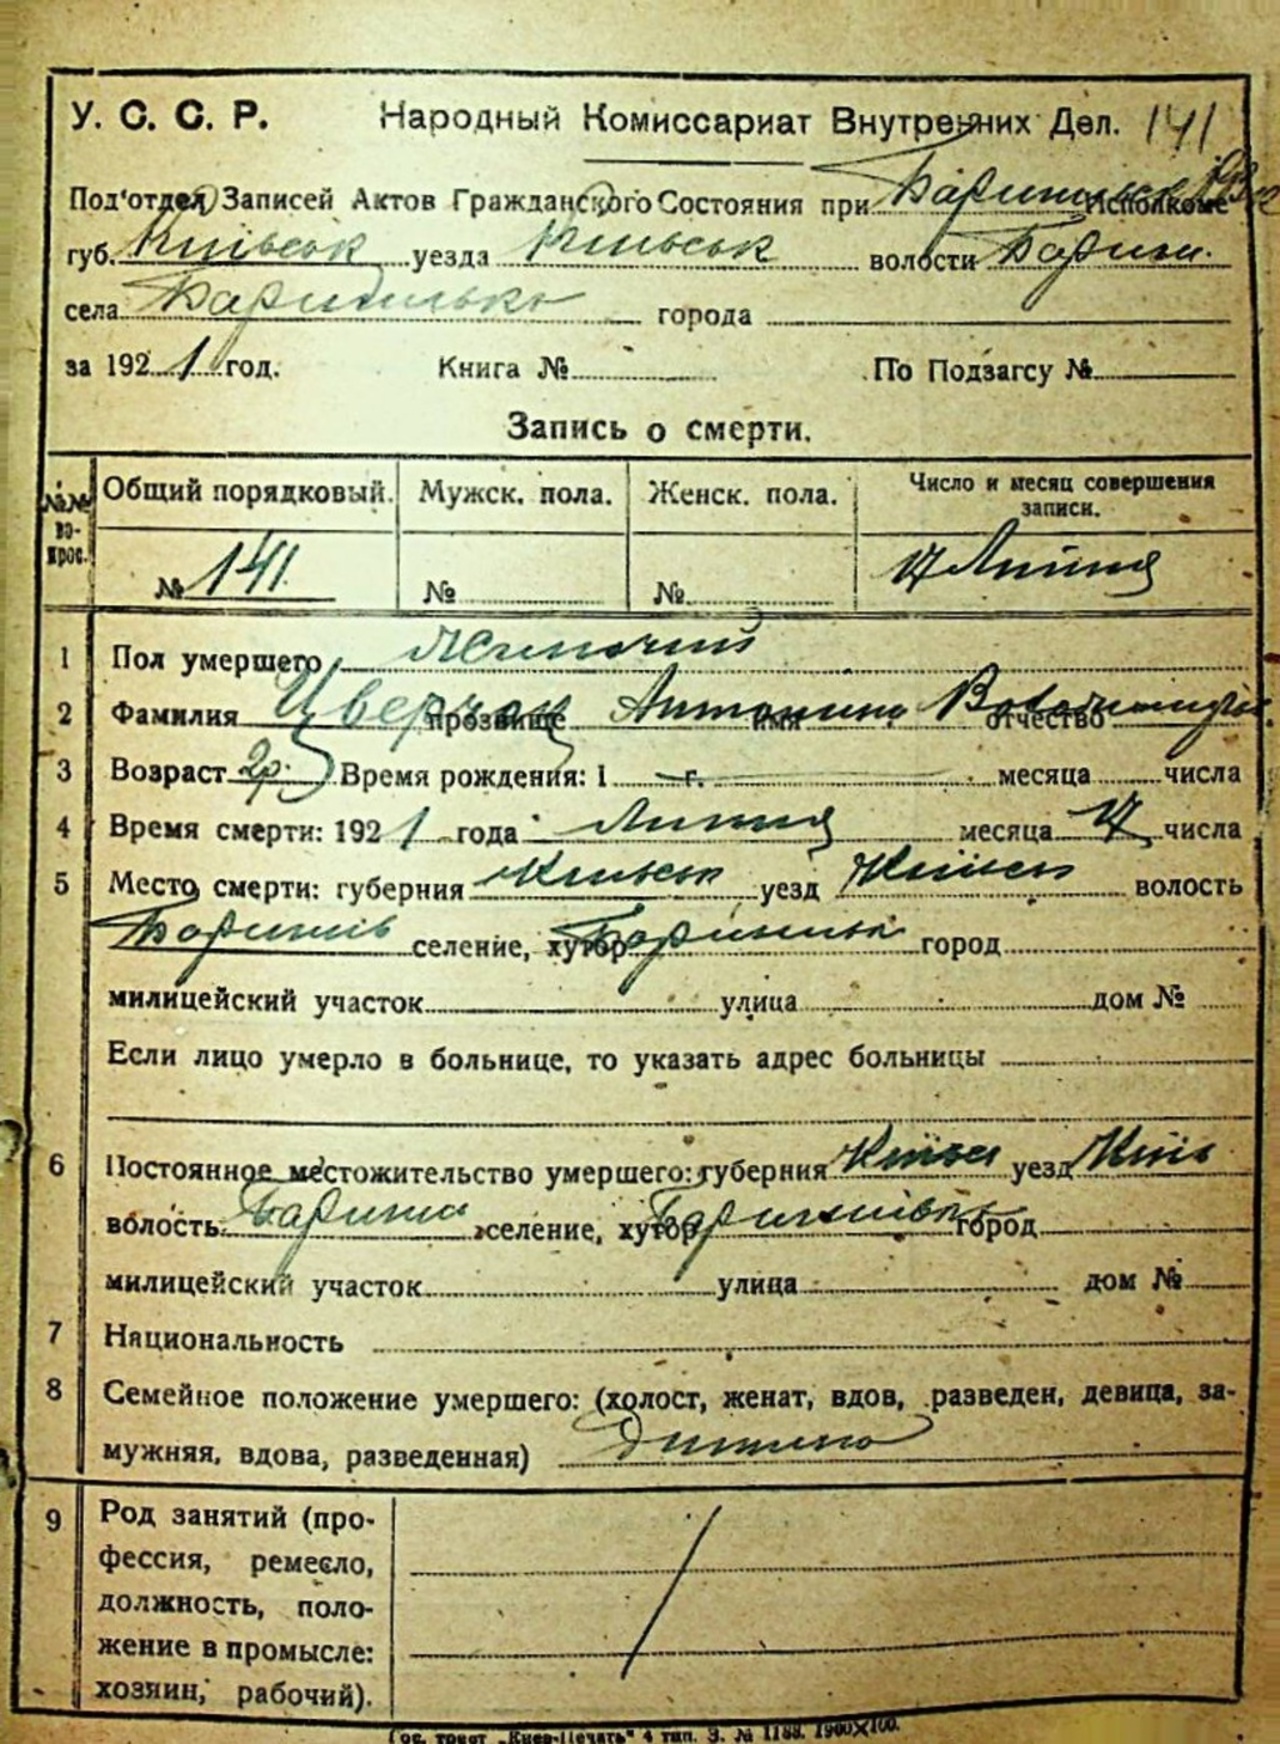 У. С. С. Р. Народный Комиссариат Внутренних Дел. 141
Под'отдел Записей Актов Гражданского Состояния при Исполкоме
губ. Київськ уезда Київськ волости Бариш.
села города
за 1921 год. Книга № По Подзагсу №
Запись о смерти.
№№ во- прос. Общий порядковый. Мужск. пола. Женск. пола. Число и месяц совершения записи.
№ 141. № № 17 Липня
1 Пол умершего Жиночий
2 Фамилия Цверчан прозвище Антонина имя отчество
3 Возраст 2р. Время рождения: 1 г. месяца числа
4 Время смерти: 1921 года Липня месяца 17 числа
5 Место смерти: губерния Київськ уезд Київськ волость
Баришів селение, хутор город
милицейский участок улица дом №
Если лицо умерло в больнице, то указать адрес больницы
6 Постоянное местожительство умершего: губерния Київськ уезд Київ
волость: Бариш селение, хутор город
милицейский участок улица дом №
7 Национальность
8 Семейное положение умершего: (холост, женат, вдов, разведен, девица, за-
мужняя, вдова, разведенная) Дитина
9 Род занятий (про-
фессия, ремесло,
должность, поло-
жение в промысле:
хозяин, рабочий).
Гос. трест „Киев-Печать" 4 тип. З. № 1188. 1900×100.